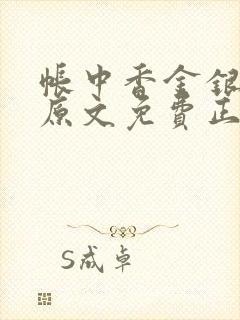 帐中香金银
原文免费正
S戒卓